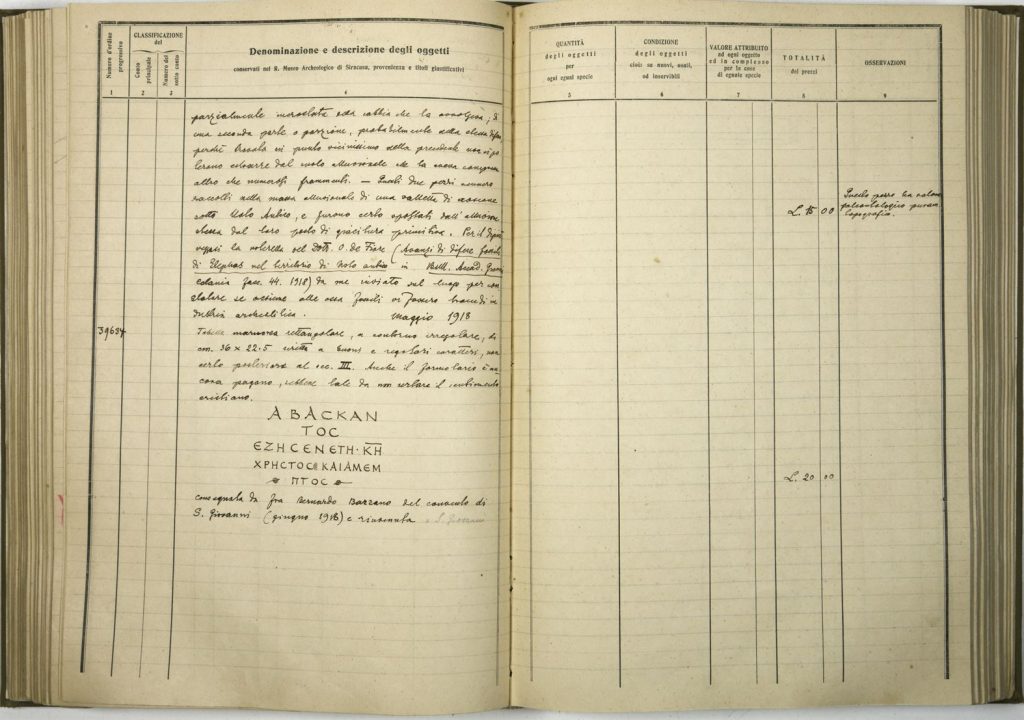 Numero d'ordine progressivo
CLASSIFICAZIONE
del
Conto principale
Numero del sotto conto
Denominazione e descrizione degli oggetti
conservati nel R. Museo Archeologico di Siracusa, provenienza e titoli giustificativi
1 2 3 4
parzialmente incrostata della sabbia che la avvolgeva, di
una seconda parte o porzione, probabilmente della stessa difesa
perchè trovata in punto vicinissimo della precedente non si po
terono estrarre dal suolo alluvionale che la aveva
altro che numerosi frammenti. — Questi due pezzi vennero
raccolti nella massa alluvionale di una valletta di
sotto Noto Antico, e furono certo spostati dall'alluvione
stessa dal loro posto di giacitura primitiva. Per il di più
veggasi la noterella del Dott. O. de Fiore (Avanzi di difese fossili
di Elephas nel territorio di Noto antico in Bull. Accad. Gioenia
Catania fasc. 44. 1918) da me inviato sul luogo per con
statare se assieme alle ossa fossili vi fossero traccie di in
dustria archeolitica. Maggio 1918
39684
Tabella marmorea rettangolare, a contorno irregolare, di
cm. 36 x 22.5 scritta a buoni e regolari caratteri, non
certo posteriore al sec. III. Anche il formulario è an
cora pagano, sebbene tale da non urtare il sentimento
cristiano.
ΑΒΑCΚΑΝ
ΤΟC
ΕΖΗCΕΝΕΤΗ·ΚΗ
ΧΡΗCΤΟC ΚΑΙΑΜΕΜ
ΠΤΟC
consegnata da fra Bernardo Bozzano del cenacolo di
S. Giovanni (giugno 1918) e rinvenuta a S. Giovanni
QUANTITÀ
degli oggetti
per
ogni egual specie
5
CONDIZIONE
degli oggetti
cioè: se nuovi, usati,
od inservibili
6
VALORE ATTRIBUITO
ad ogni oggetto
ed in complesso
per le cose
di eguale specie
7
TOTALITÀ
dei prezzi
8
OSSERVAZIONI
9
L. 15 00
Questo pezzo ha valore
paleontologico puram.
L. 20 00